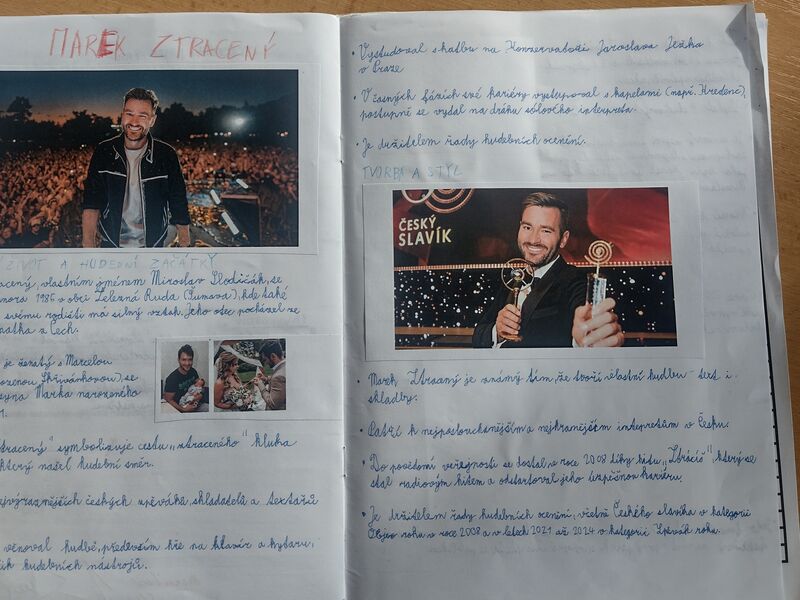 MAREK ZTRACENÝ
ŽIVOT A HUDEBNÍ ZAČÁTKY
vlastním jménem Miroslav Slodičák, se
února 1985 v obci Železná Ruda (Šumava), kde také
svému rodišti má silný vztah. Jeho otec pocházel ze
matka z Čech.
je ženatý s Marcelou
Skřivánkovou), se
syna Marka narozeného
Ztracený" symbolizuje cestu „ztraceného" kluka
který našel hudební směr.
nejvýraznějších českých zpěváků, skladatelů a textařů
věnoval hudbě, především hře na klavír a kytaru,
hudebních nástrojů.
• Vystudoval skladbu na Konzervatoři Jaroslava Ježka
v Praze
• V časných fázích své kariéry vystupoval s kapelami (např. Kredenc),
postupně se vydal na dráhu sólového interpreta.
• Je držitelem řady hudebních ocenění.
TVORBA A STYL
ČESKÝ
SLAVÍK
• Marek Ztracený je známý tím, že tvoří vlastní hudbu - text i
skladby.
• Patří k nejposlouchanějším a nejhranějším interpretům v Česku.
• Do povědomí veřejnosti se dostal v roce 2008 díky hitu „Ztrácíš", který se
stal rádiovým hitem a odstartoval jeho úspěšnou kariéru.
• Je držitelem řady hudebních ocenění, včetně Českého slavíka v kategorii
Objev roku v roce 2008 a v letech 2021 až 2024 v kategorii Zpěvák roku.